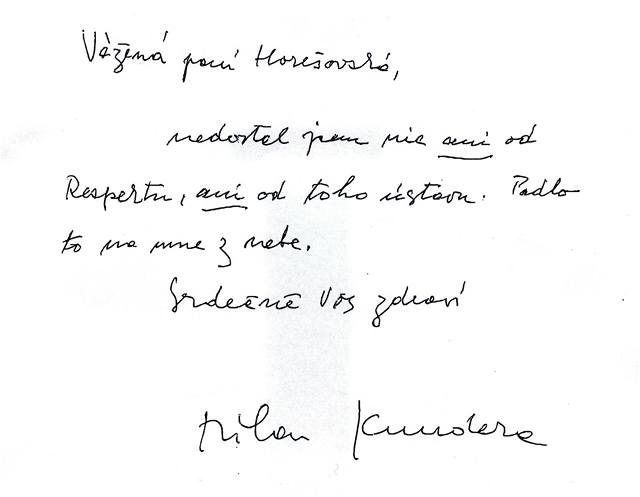 Vážená paní Horešovská,
nedostal jsem nic ani od
Respektu, ani od toho ústavu. Padlo
to na mne z nebe.
Srdečně Vás zdraví
Milan Kundera